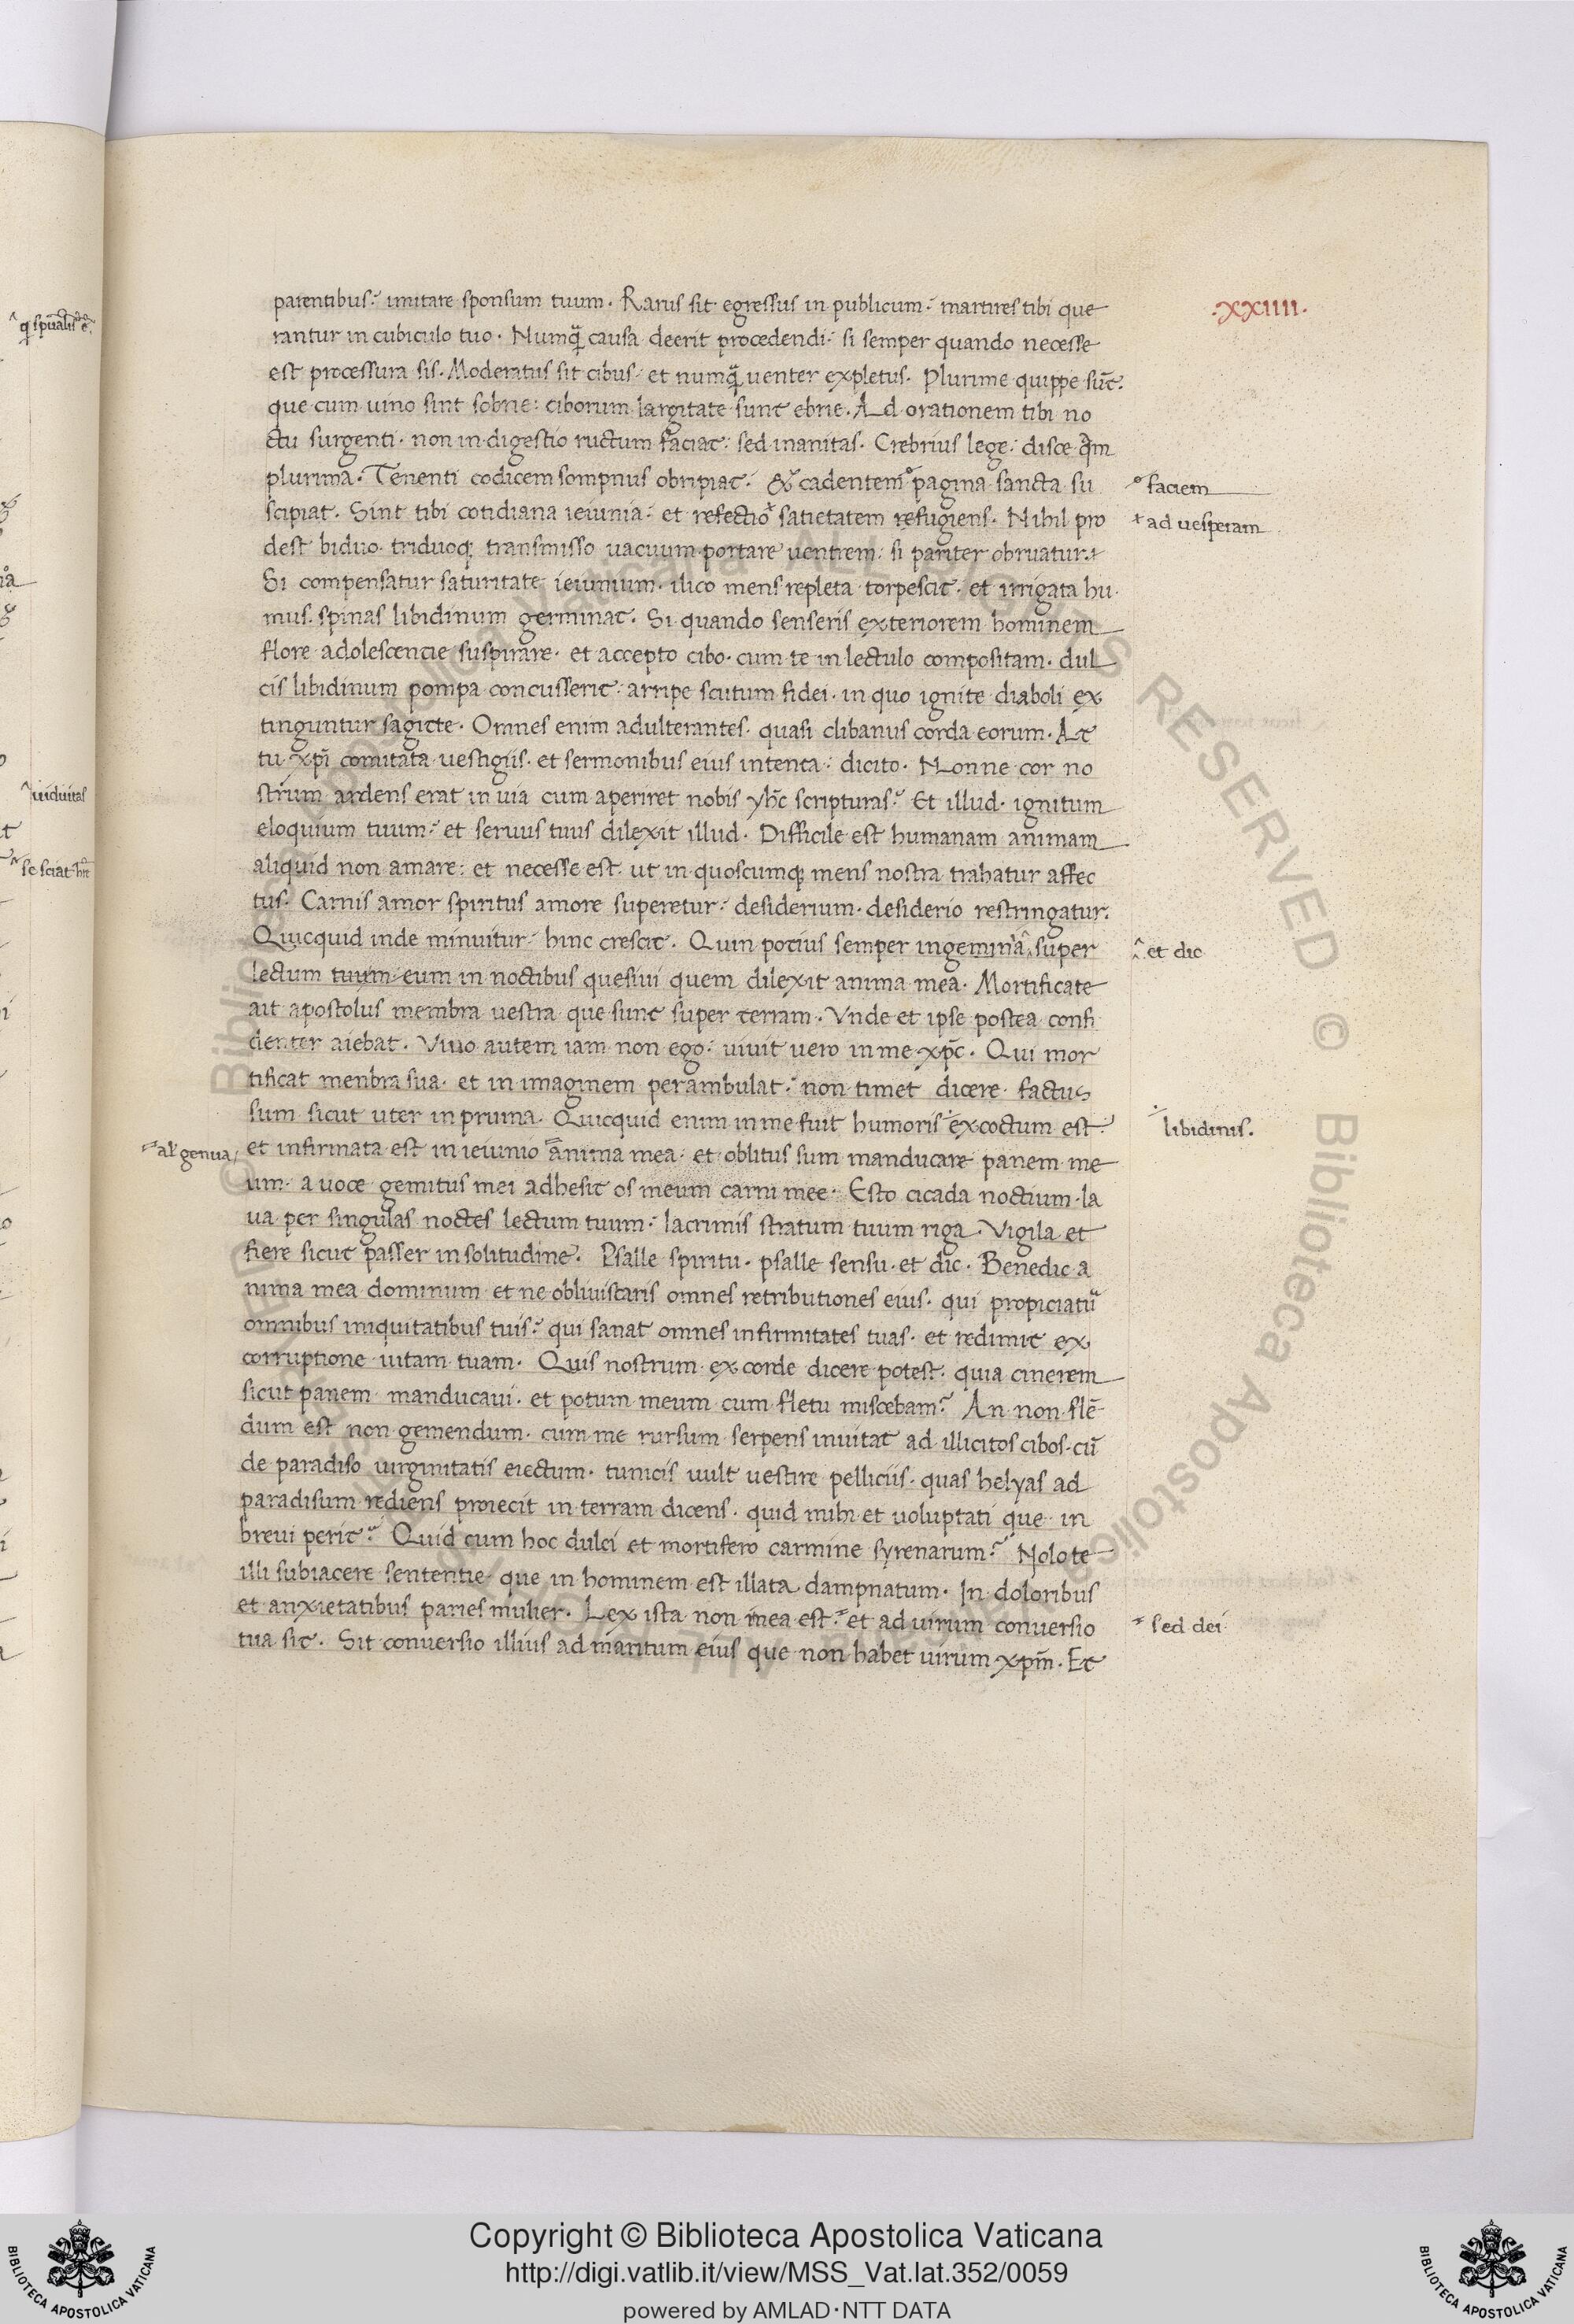 .XXIIII.
parentibus. imitare sponsum tuum. Rarus sit egressus in publicum. martires tibi que
rantur in cubiculo tuo. Numq̃ causa deerit procedendi. si semper quando necesse
est processura sis. Moderatus sit cibus. et numq̃ uenter expletus. Plurime quippe sũt.
que cum uino sint sobrie. ciborum largitate sunt ebrie. Ad orationem tibi no
ctu surgenti. non indigestio ructum faciat. sed inanitas. Crebrius lege. disce q̃m
plurima. Tenenti codicem sompnus obripiat. & cadentem pagina sancta su
faciem
scipiat. Sint tibi cotidiana ieiunia. et refectio satietatem refugiens. Nihil pro
ad uesperam
dest biduo triduoq; transmisso uacuum portare uentrem. si pariter obruatur.
Si compensatur saturitate ieiunium. ilico mens repleta torpescit. et irrigata hu
mus. spinas libidinum germinat. Si quando senseris exteriorem hominem
flore adolescencie suspirare. et accepto cibo. cum te in lectulo compositam. dul
cis libidinum pompa concusserit. arripe scutum fidei. in quo ignite diaboli ex
tinguntur sagicte. Omnes enim adulterantes. quasi clibanus corda eorum. At
tu xp̃i comitata uestigiis. et sermonibus eius intenta. dicito. Nonne cor no
strum ardens erat in uia cum aperiret nobis yhc̃ scripturas. Et illud. ignitum
eloquium tuum. et seruus tuus dilexit illud. Difficile est humanam animam
aliquid non amare. et necesse est. ut in quoscumq; mens nostra trahatur affec
tus. Carnis amor spiritus amore superetur. desiderium. desiderio restringatur.
Quicquid inde minuitur. hinc crescit. Quin potius semper ingemina super
et dic
lectum tuum. eum in noctibus quesiui quem dilexit anima mea. Mortificate
ait apostolus membra uestra que sunt super terram. Vnde et ipse postea confi
denter aiebat. Viuo autem iam non ego. uiuit uero in me xp̃c. Qui mor
tificat menbra sua. et in imaginem perambulat. non timet dicere. factus
sum sicut uter in pruina. Quicquid enim in me fuit humoris excoctum est.
libidinis.
al' genua
et infirmata est in ieiunio anima mea. et oblitus sum manducare panem me
um. a uoce gemitus mei adhesit os meum carni mee. Esto cicada noctium. la
ua per singulas noctes lectum tuum. lacrimis stratum tuum riga. Vigila et
fiere sicut passer in solitudine. Psalle spiritu. psalle sensu. et dic. Benedic a
nima mea dominum et ne obliuiscaris omnes retributiones eius. qui propiciatu͛
omnibus iniquitatibus tuis. qui sanat omnes infirmitates tuas. et redimit ex
corruptione uitam tuam. Quis nostrum ex corde dicere potest. quia cinerem
sicut panem manducaui. et potum meum cum fletu miscebam. An non flẽ
dum est non gemendum. cum me rursum serpens inuitat ad illicitos cibos. cũ
de paradiso uirginitatis eiectum. tunicis uult uestire pelliciis. quas helyas ad
paradisum rediens proiecit in terram dicens. quid mihi et uoluptati que in
breui perit. Quid cum hoc dulci et mortifero carmine syrenarum. Nolo te
illi subiacere sententie que in hominem est illata dampnatum. In doloribus
et anxietatibus paries mulier. Lex ista non mea est. et ad uirum conuersio
sed dei
tua sit. Sit conuersio illius ad maritum eius que non habet uirum xpm̃. Et
uiduitas
Copyright © Biblioteca Apostolica Vaticana
http://digi.vatlib.it/view/MSS_Vat.lat.352/0059
powered by AMLAD·NTT DATA
BIBLIOTECA APOSTOLICA VATICANA
BIBLIOTECA APOSTOLICA VATICANA